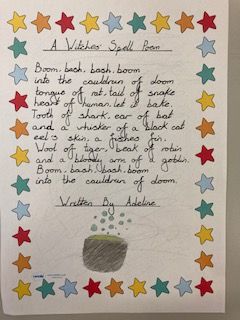 A Witches Spell Poem
Boom, bash, bash, boom
into the cauldron of doom
tongue of rat, tail of snake
heart of human, let it bake.
Tooth of shark, ear of bat
and a whisker of a black cat
eel's skin, a fishes fin,
Wool of tiger, beak of robin
and a bloody arm of a goblin.
Boom, bash, bash, boom
into the cauldron of doom.
Written By Adeline